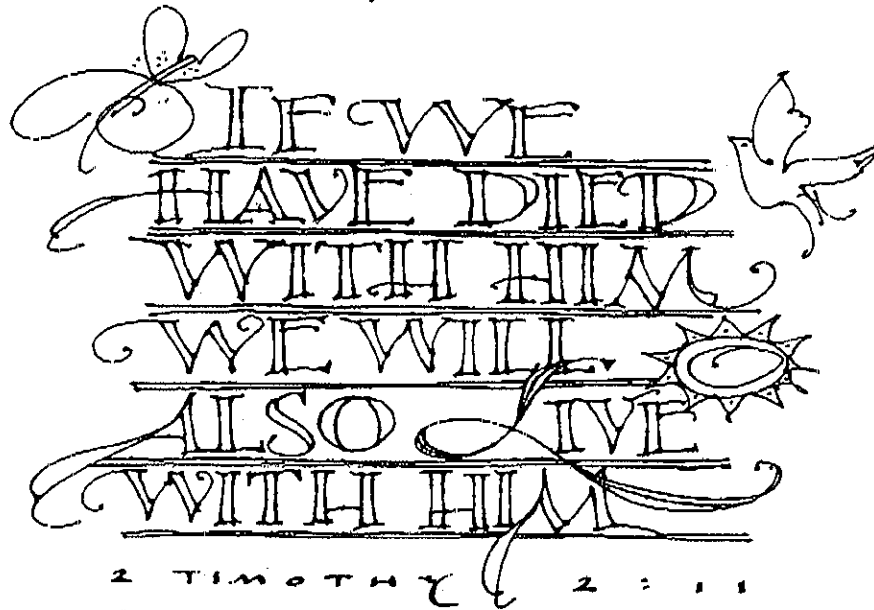 IF WE
HAVE DIED
WITH HIM
WE WILL
ALSO LIVE
WITH HIM
2 TIMOTHY 2:11